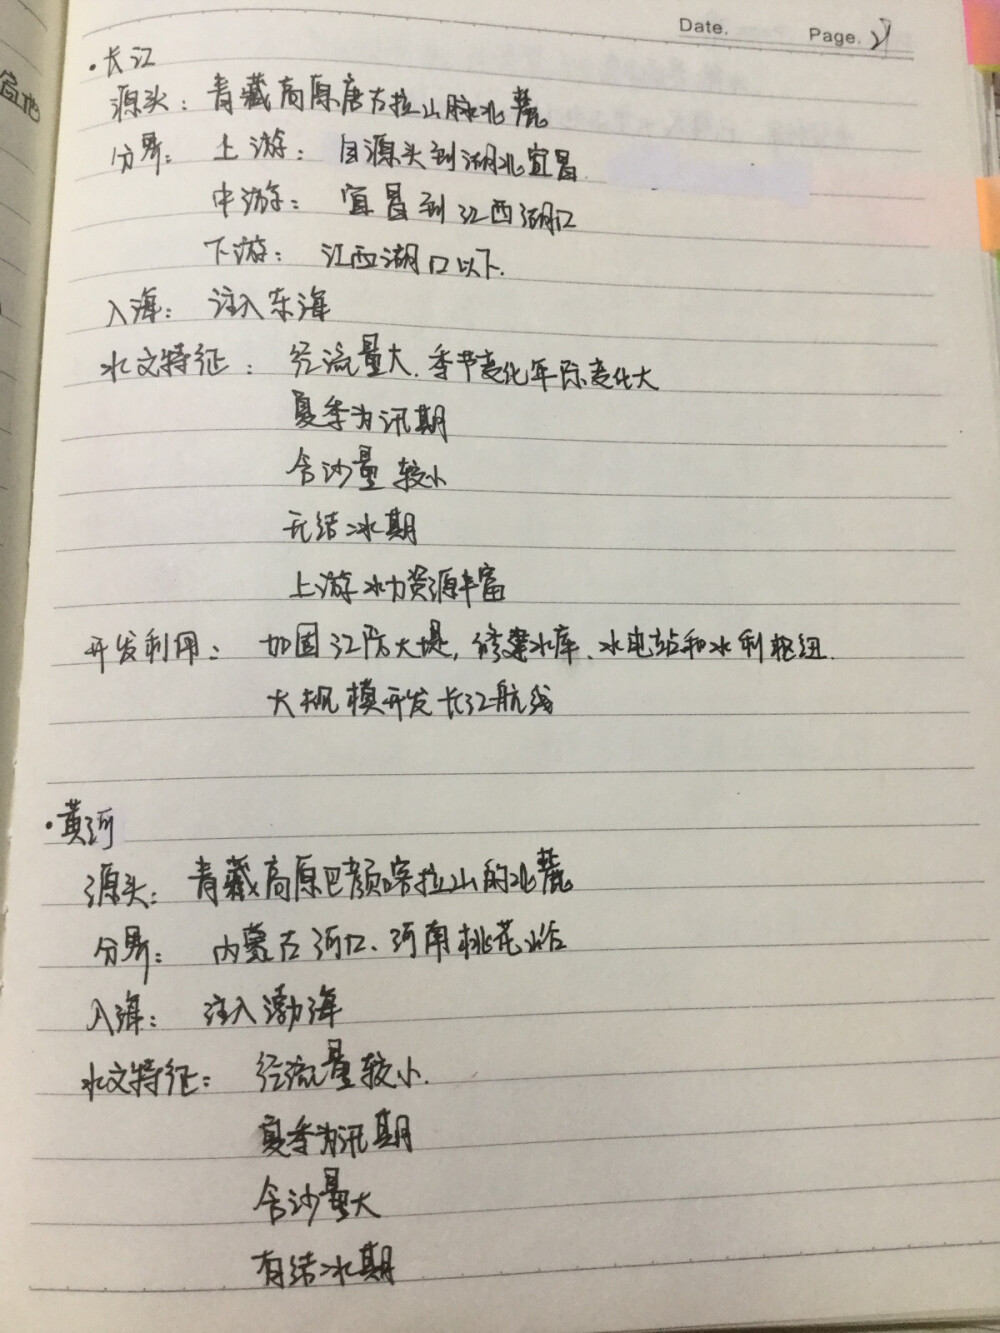 Date. Page. 21
·长江
源头：青藏高原唐古拉山脉北麓
分界：上游：自源头到湖北宜昌
中游：宜昌到江西湖口
下游：江西湖口以下.
入海：注入东海
水文特征：径流量大.季节变化年际变化大
夏季为汛期
含沙量较小
无结冰期
上游水力资源丰富
开发利用：加固江防大堤,修建水库、水电站和水利枢纽.
大规模开发长江航线
·黄河
源头：青藏高原巴颜喀拉山的北麓
分界：内蒙古河口、河南桃花峪
入海：注入渤海
水文特征：径流量较小.
夏季为汛期
含沙量大
有结冰期